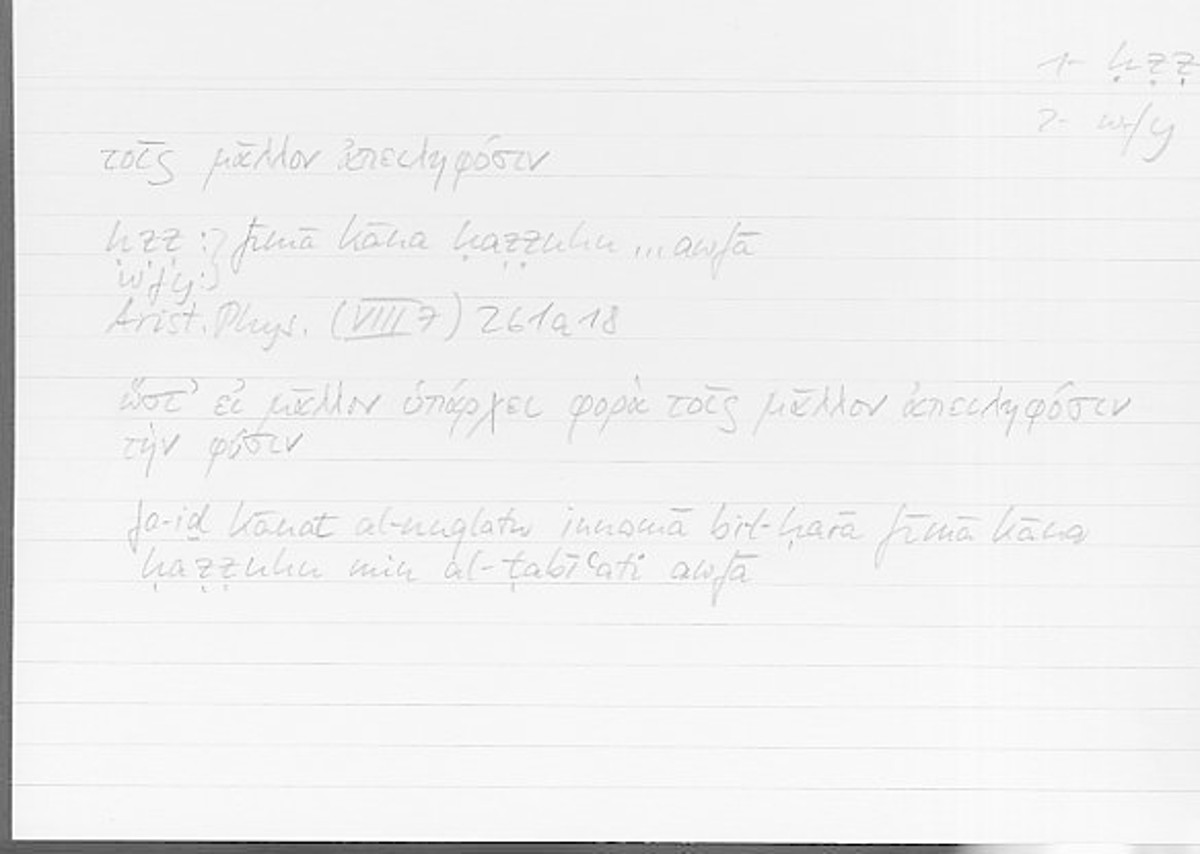 1- ḥẓẓ
2- wfy
τοῖς μᾶλλον ἀπειληφόσιν
ḥẓẓ :} fīmā kāna ḥaẓẓuhu ... awfā
wfy:}
Arist. Phys. (VIII 7) 261a18
ὥστ' εἰ μᾶλλον ὑπάρχει φορὰ τοῖς μᾶλλον ἀπειληφόσιν
τὴν φύσιν
fa-iḏ kānat al-nuqlatu innamā bi-l-ḥarā fīmā kāna
ḥaẓẓuhu min al-ṭabīʿati awfā